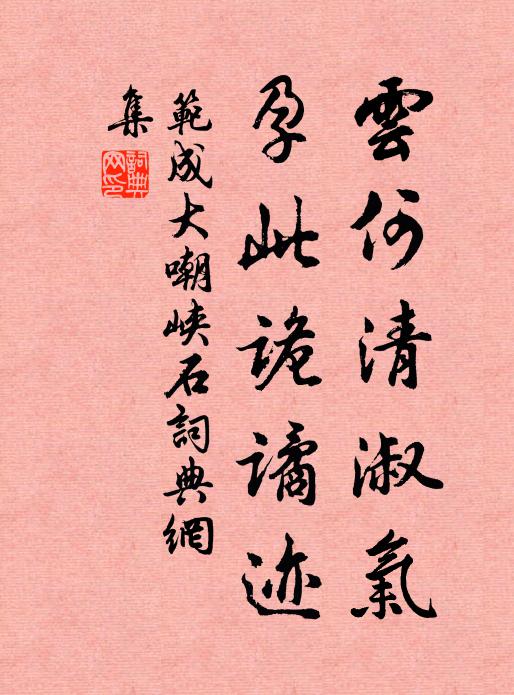 雲何清淑氣
孕此詭譎迹
範成大嘲峽石詞典網
集
詞典網印